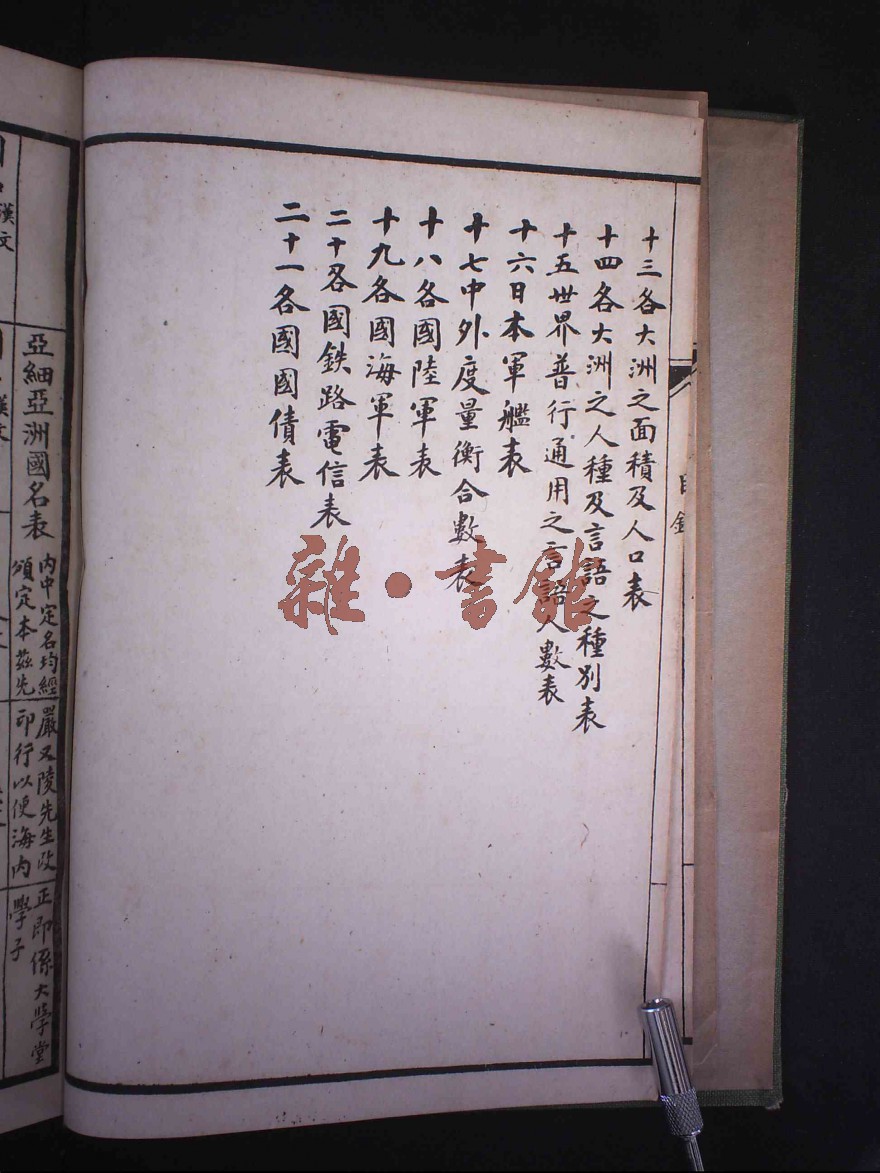 目錄
十三各大洲之面積及人口表
十四各大洲之人種及言語之種別表
十五世界普行通用之言語人數表
十六日本軍艦表
十七中外度量衡合數表
十八各國陸軍表
十九各國海軍表
二十各國鉄路電信表
二十一各國國債表
雜·書館
亞細亞洲國名表
內中定名均經嚴又陵先生改正即係大學堂
頒定本茲先印行以便海內學子
漢文
漢文